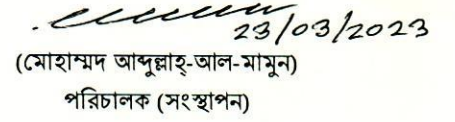 23/03/2023
(মোহাম্মদ আব্দুল্লাহ্-আল-মামুন)
পরিচালক (সংস্থাপন)